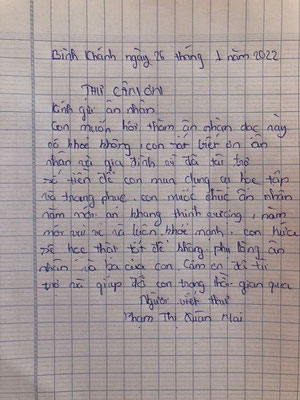 Bình Khánh ngày 26 tháng 1 năm 2022
THƯ CẢM ƠN
Kính gửi ân nhân
Con muốn hỏi thăm ân nhân dạo này
có khoẻ không, con rất biết ơn ân
nhân và gia đình cô đã tài trợ
số tiền để con mua dụng cụ học tập
và trang phục. con chúc ân nhân
năm mới an khang thịnh vượng, năm
mới vui vẻ và luôn khoẻ mạnh. con hứa
sẽ học thật tốt để không phụ lòng ân
nhân và ba của con. Cảm ơn đã tài
trợ và giúp đỡ con trong thời gian qua
Người viết thư
Phạm Thị Xuân Mai